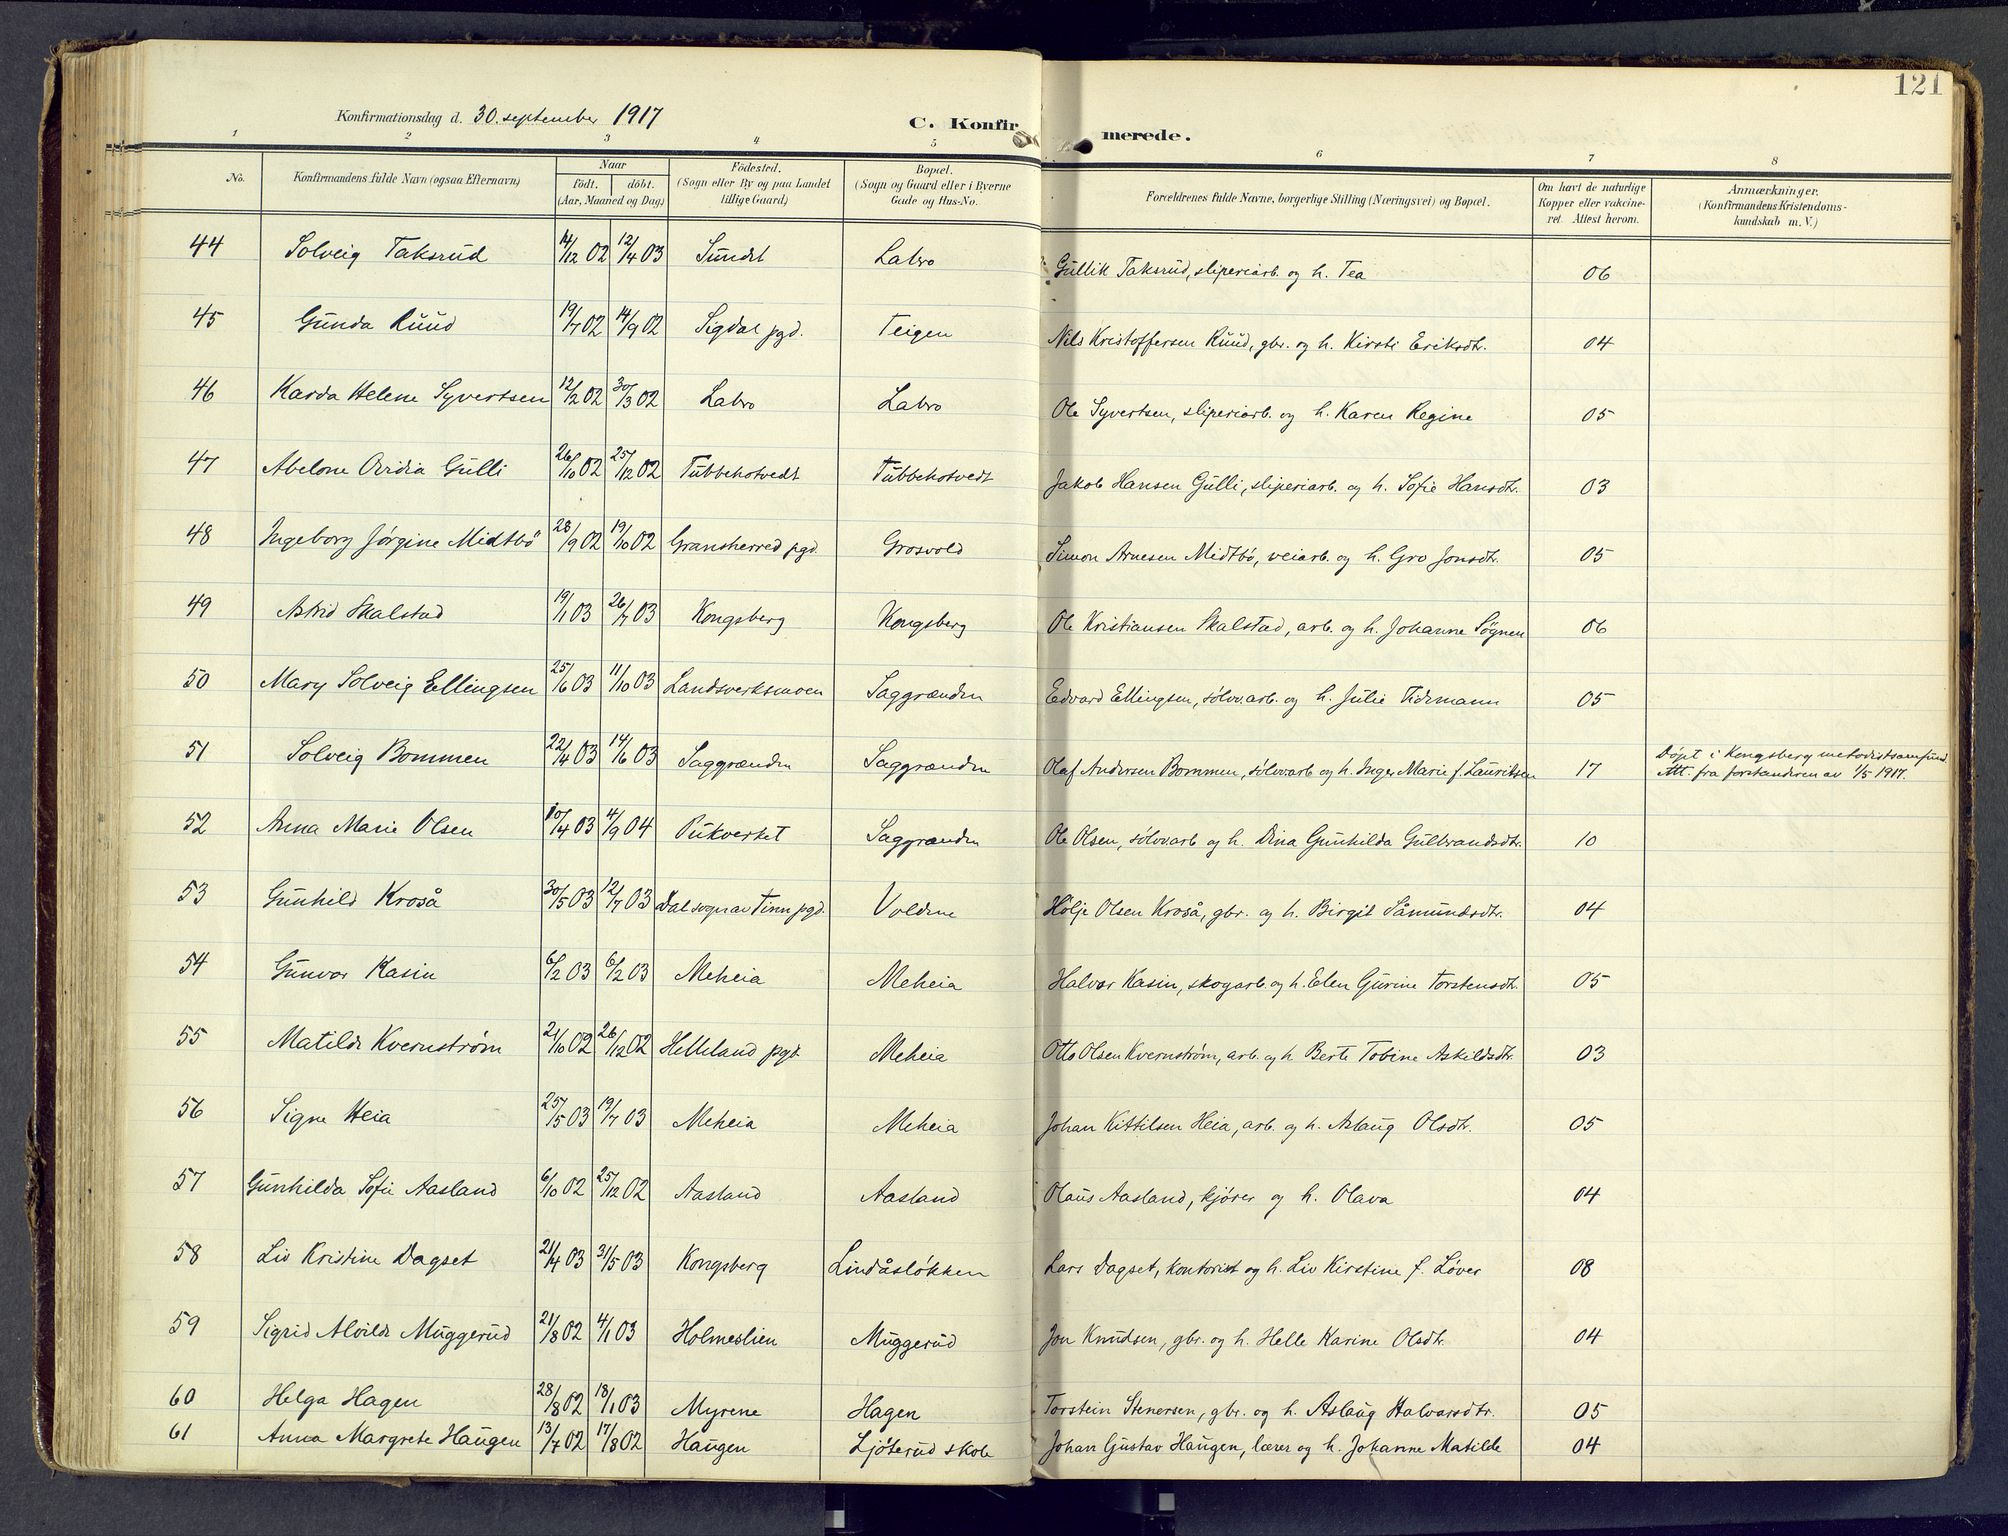 121
Konfirmationsdag d. 30. september 1917
C. Konfirmerede.
1 2 3 4 5 6 7 8
No. | Konfirmandens fulde Navn (ogsaa Efternavn) | Naar födt. döbt. (Aar, Maaned og Dag) | Födested. (Sogn eller By og paa Landet tillige Gaard) | Bopæl. (Sogn og Gaard eller i Byerne Gade og Hus-No. | Forældrenes fulde Navne, borgerlige Stilling (Næringsvei) og Bopæl. | Om havt de naturlige Kopper eller vakcineret. Attest herom. | Anmærkninger. (Konfirmandens Kristendomskundskab m. V.)
44 Solveig Taksrud 14/12 02 12/4 03 Sundet Labro Gullik Taksrud, sliperiarb. og h. Tea 06
45 Gunda Ruud 19/7 02 14/9 02 Sigdal pgd. Teigen Nils Kristoffersen Ruud, gbr. og h. Kirsti Eriksdtr. 04
46 Karda Helene Syvertsen 12/2 02 30/3 02 Labro Labro Ole Syvertsen, sliperiarb. og h. Karen Regine 05
47 Abelone Ovidia Gulli 26/10 02 25/12 02 Tubbehotvedt Tubbehotvedt Jakob Hansen Gulli, sliperiarb. og h. Sofie Hansdtr. 03
48 Ingeborg Jørgine Midtbö 28/9 02 19/10 02 Gransherred pgd. Grosvold Simon Arnesen Midtbö, veiarb. og h. Gro Jonsdtr. 05
49 Astrid Skalstad 19/1 03 26/7 03 Kongsberg Kongsberg Ole Kristiansen Skalstad, arb. og h. Johanne Søgnen 06
50 Mary Solveig Ellingsen 25/6 03 11/10 03 Landsverksmoen Saggrænden Edvard Ellingsen, sølvv.arb. og h. Julie Tidemann 05
51 Solveig Bommen 22/4 03 14/6 03 Saggrænden Saggrænden Olaf Andersen Bommen, sølvvarb og h. Inger Marie f. Lauritsen 17 Døpt i Kongsberg metodistsamfund.
Att. fra forstanderen av 1/5 1917.
52 Anna Marie Olsen 10/4 03 4/9 04 Pukverket Saggrænden Ole Olsen, sølvvarb og h. Dina Gunhilda Gulbrandsdtr. 10
53 Gunhild Kroså 30/5 03 12/7 03 Dal sogn av Tinn pgd. Voldene Hölje Olsen Kroså, gbr. og h. Birgit Såmundsdtr. 04
54 Gunvor Kasin 6/2 03 6/2 03 Meheia Meheia Halvor Kasin, skogarb. og h. Elen Gurine Torstensdtr. 05
55 Matilde Kvernstrøm 21/10 02 26/12 02 Helleland pgd. Meheia Otto Olsen Kvernstrøm, arb. og h. Berte Tobine Askildsdtr. 03
56 Signe Heia 25/5 03 19/7 03 Meheia Meheia Johan Kittilsen Heia, arb. og h. Aslaug Olsdtr. 05
57 Gunhilda Sofie Aasland 6/10 02 25/12 02 Aasland Aasland Olaus Aasland, kjører og h. Olava 04
58 Liv Kristine Dagset 21/4 03 31/5 03 Kongsberg Lindåsløkken Lars Dagset, kontorist og h. Liv Kirstine f. Løver 08
59 Sigrid Alvilde Muggerud 21/8 02 4/1 03 Holmeslien Muggerud Jon Knudsen, gbr. og h. Helle Karine Olsdtr. 04
60 Helga Hagen 28/8 02 18/1 03 Myrene Hagen Torstein Stenersen, gbr. og h. Aslaug Halvorsdtr. 05
61 Anna Margrete Haugen 13/7 02 17/8 02 Haugen Ljøterud skole Johan Gustav Haugen, lærer og h. Johanne Matilde 04